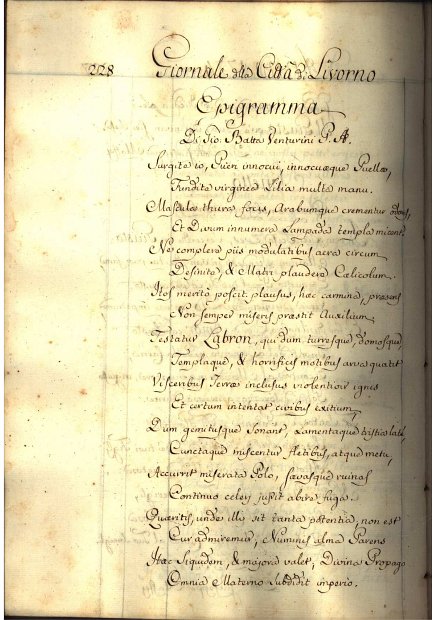 228 Giornale della Città di Livorno
Epigramma
Di Gio: Batta Venturini P. A.
Surgite io, Pueri innocui, innocuaeque Puellae,
Fundite virginea Lilia multa manu.
Mascula thura focis, Arabumque crementur odores,
Et Divum innumera Lampada templa micent,
Neu complere piis modulatibus aera circum
Desinite, & Matri plaudere Caelicolum.
Hos merito poscit plausus, haec carmina, praesens
Non semper miseris praestit Auxilium.
Testatur Labron, qui dum turresque, domosque
Templaque, & horrificis motibus arva quatit
Visceribus Terrae inclusus violentior ignes
Et certum intentat civibus exitium,
Dum gemitusque sonant, Lamentaque tristia late,
Cunctaque miscentur fletibus, atque metu,
Accurrit miserata Polo, saevasque ruinas
Continuo celeri jussit abire fuga.
Quaeritis, unde illi sit tanta potentia, non est
Cur admiremur, Numinis alma Parens
Haec siquidem, & majora valet, Divina Propago
Omnia Materno subdidit imperio.